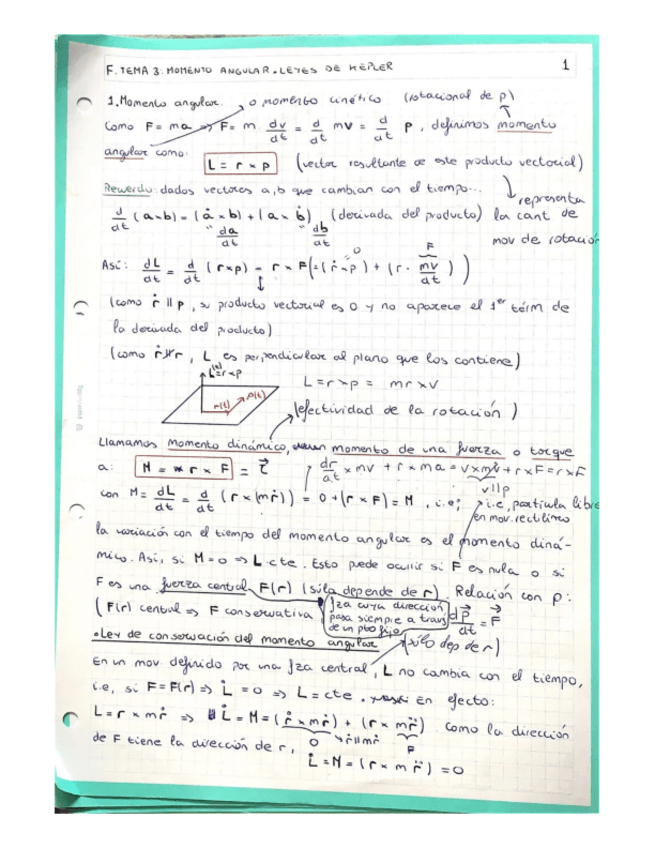 F. TEMA 3: MOMENTO ANGULAR. LEYES DE KEPLER 1
1. Momento angular. o momento cinético (rotacional de p)
Como F = ma => F = m dv/dt = d/dt mv = d/dt p, definimos momento
angular como:
L = r × p (vector resultante de este producto vectorial)
Recuerdo: dados vectores a, b que cambian con el tiempo...
representa
d/dt (a×b) = (ȧ × b) + (a × ḃ) (derivada del producto) la cant de
da/dt db/dt mov de rotación
Así: dL/dt = d/dt (r×p) = r × F (= (ṙ × p) + (r · mv/dt)) 0 F
(como ṙ ∥ p, su producto vectorial es 0 y no aparece el 1er térm de
la derivada del producto)
(como ṙ ∦ r, L es perpendicular al plano que los contiene)
L = r×p
L = r × p = mr × v
r(t) p(t)
(efectividad de la rotación)
Llamamos momento dinámico, momento de una fuerza o torque
a: M = r × F = τ⃗ dr/dt × mv + r × ma = v × mv + r × F = r × F
v ∥ p
con M = dL/dt = d/dt (r × (mṙ)) = 0 + (r × F) = M, i.e; i.e, partícula libre
en mov. rectilíneo
la variación con el tiempo del momento angular es el momento diná-
mico. Así, si M = 0 => L cte. Esto puede ocurrir si F es nula o si
F es una fuerza central F(r) (sólo depende de r). Relación con p:
(F(r) central => F conservativa
fza cuya dirección
pasa siempre a través
de un pto fijo
dp⃗/dt = F⃗
• Ley de conservación del momento angular (sólo dep de r)
En un mov definido por una fza central, L no cambia con el tiempo,
i.e, si F = F(r) => L̇ = 0 => L = cte. En efecto:
L = r × mṙ => L̇ = M = (ṙ × mṙ) + (r × mr̈) Como la dirección
0 ṙ ∥ mṙ F
de F tiene la dirección de r,
L̇ = M = (r × m r̈) = 0